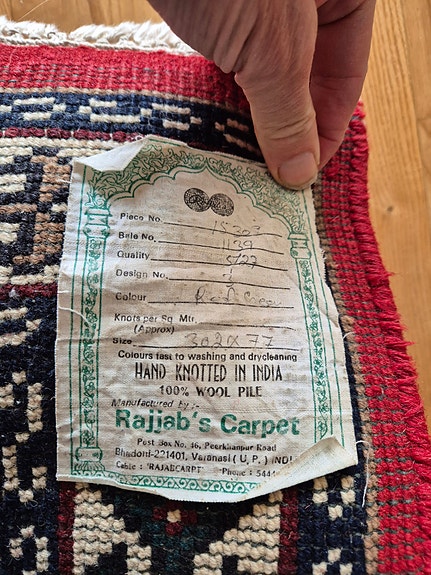 Piece No. 15303
Bale No. 1139
Quality 5/22
Design No.
Colour Red
Knots per Sq. Mtr.
(Approx)
Size 302 X 77
Colours fast to washing and drycleaning
HAND KNOTTED IN INDIA
100% WOOL PILE
Manufactured by :-
Rajjab's Carpet
Post Box No. 46, Peerkhanpur Road
Bhadohi-221401, Varanasi ( U. P. ) INDI
Cable : 'RAJABCARPT' Phone : 544